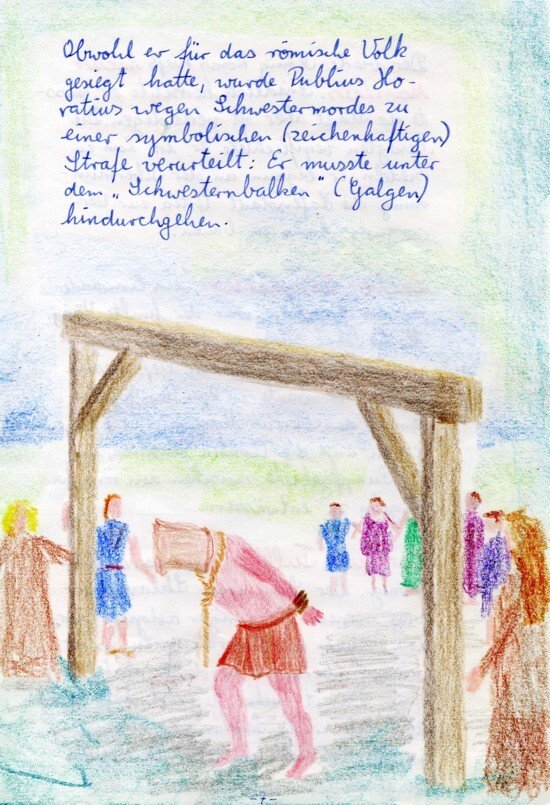 Obwohl er für das römische Volk
gesiegt hatte, wurde Publius Ho-
ratius wegen Schwestermordes zu
einer symbolischen (zeichenhaftigen)
Strafe verurteilt: Er musste unter
dem „Schwesternbalken" (Galgen)
hindurchgehen.